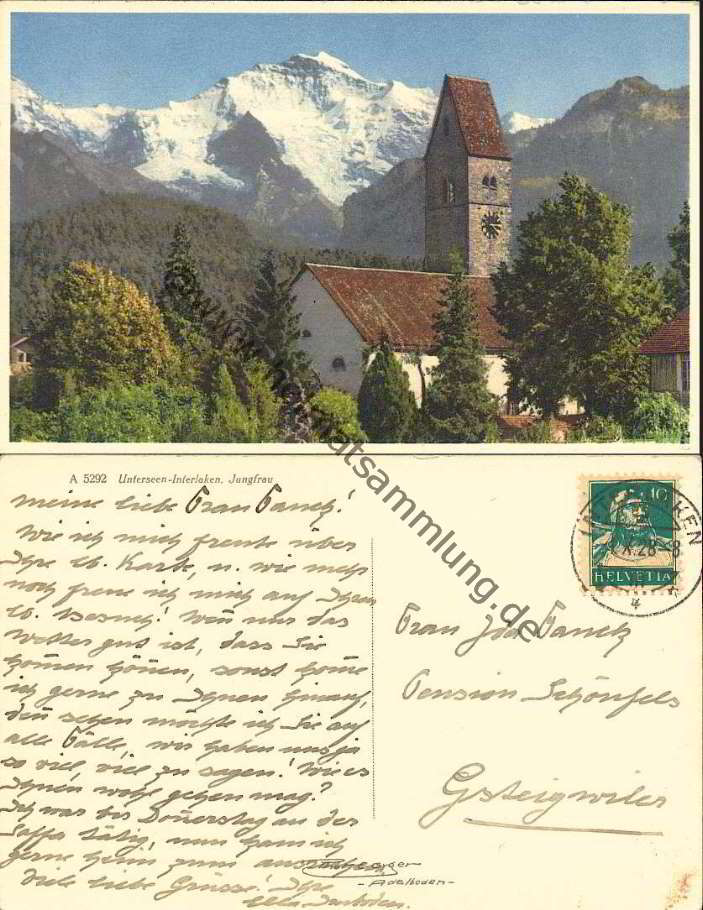 www.heimatsammlung.de
A 5292 Unterseen-Interlaken, Jungfrau
meine liebe Frau Panck!
Wie ich mich freute über
Ihre lb. Karte, u. wie mehr
noch freue ich mich auf Ihren
lb. Besuch! Weñ nur das
Wetter gut ist, dass Sie
kom̄en kön̄en, sonst kom̄e
ich gerne zu Ihnen hinauf,
deñ sehen möchte ich Sie auf
alle Fälle, wir haben uns ja
so viel, viel zu sagen! Wie es
Ihnen wohl gehen mag?
Ich war bis Don̄erstag an der
Saffa tätig, nun kam ich
gerne heim zum
Viele liebe Grüsse! Ihre
Ella
10
HELVETIA
X.28-8
Frau Ida Panck
Pension Schönfels
Gsteigwiler
-Adelboden-